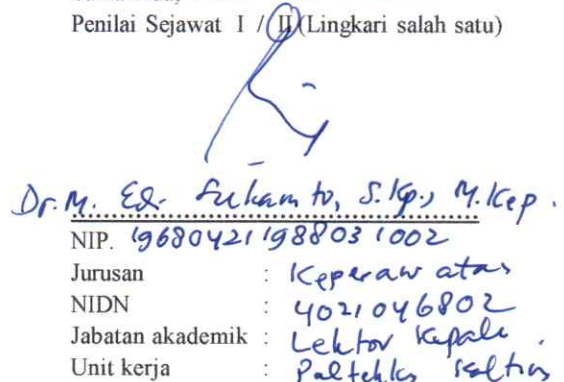 Penilai Sejawat I / II (Lingkari salah satu)
Dr. M. Edi Sukamto, S.Kp., M.Kep.
NIP. 196804211988031002
Jurusan : Keperawatan
NIDN : 4021046802
Jabatan akademik : Lektor Kepala
Unit kerja : Poltekkes Kaltim